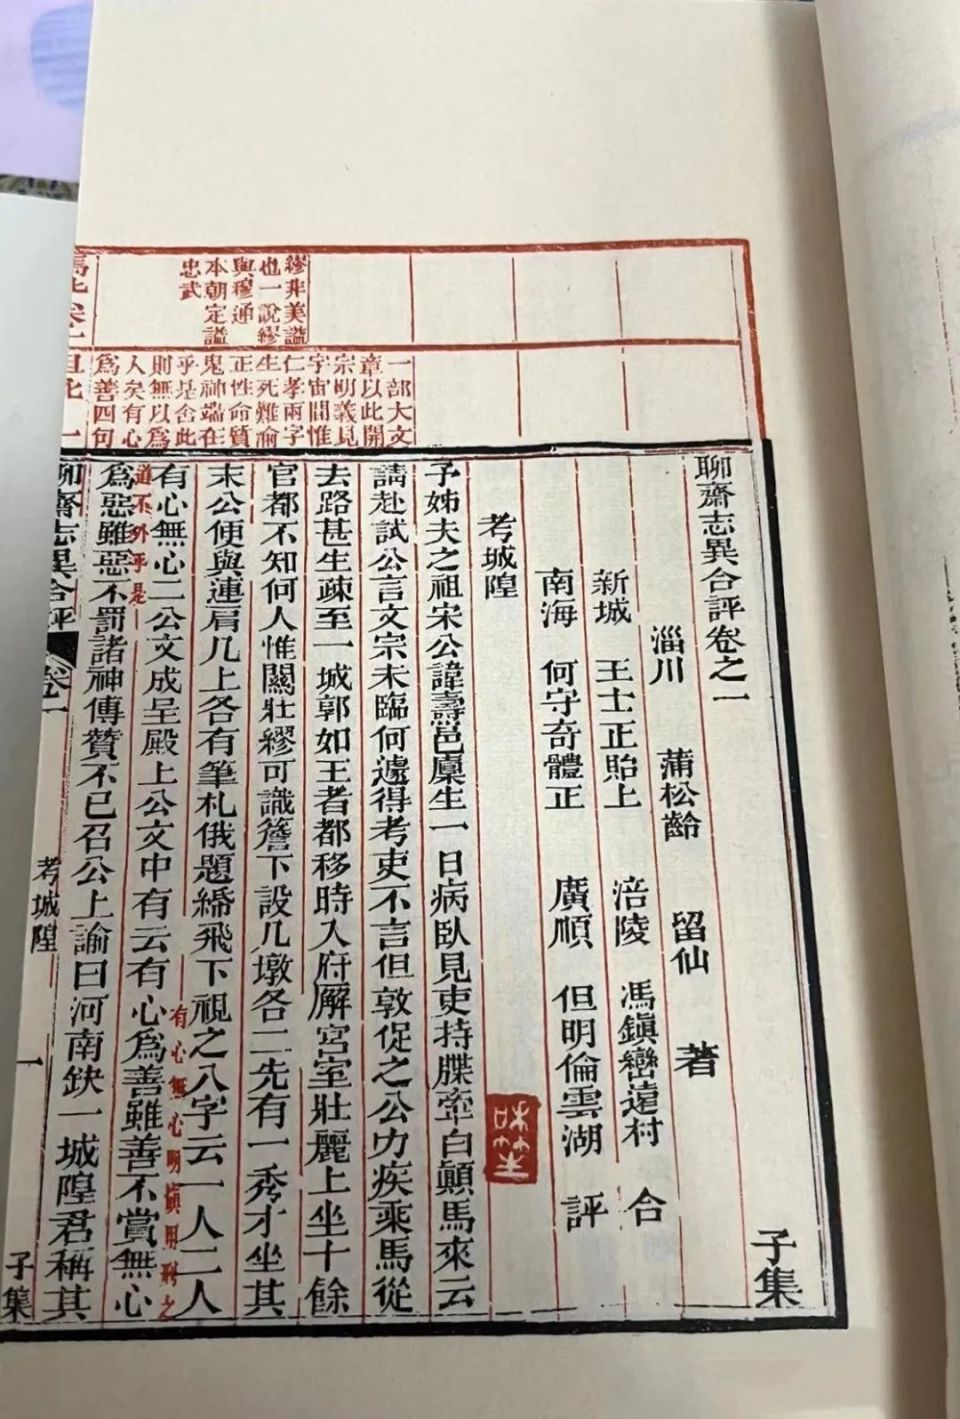 聊齋志異合評卷之一
子集
淄川 蒲松齡 留仙 著
新城 王士正貽上 涪陵 馮鎭巒遠村 合
南海 何守奇體正 廣順 但明倫雲湖 評
考城隍
予姊夫之祖宋公諱壽邑廩生一日病臥見吏持牒牽白顚馬來云
請赴試公言文宗未臨何遽得考吏不言但敦促之公力疾乘馬從
去路甚生疎至一城郭如王者都移時入府廨宮室壯麗上坐十餘
官都不知何人惟關壯繆可識簷下設几墩各二先有一秀才坐其
末公便與連肩几上各有筆札俄題紙飛下視之八字云一人二人
有心無心二公文成呈殿上公文中有云有心爲善雖善不賞無心
爲惡雖惡不罰諸神傳贊不已召公上諭曰河南缺一城隍君稱其
繆非美諡
也一說繆
與穆通
本朝定諡
忠武
一部大文
章以此開
宗明義見
宇宙間惟
仁孝兩字
生死難渝
正性命質
鬼神端在
乎是舍此
則無以爲
人矣有心
爲善四句
有心無心明賞用刑之
道不外乎是
聊齋志異合評
卷一
考城隍
一
子集